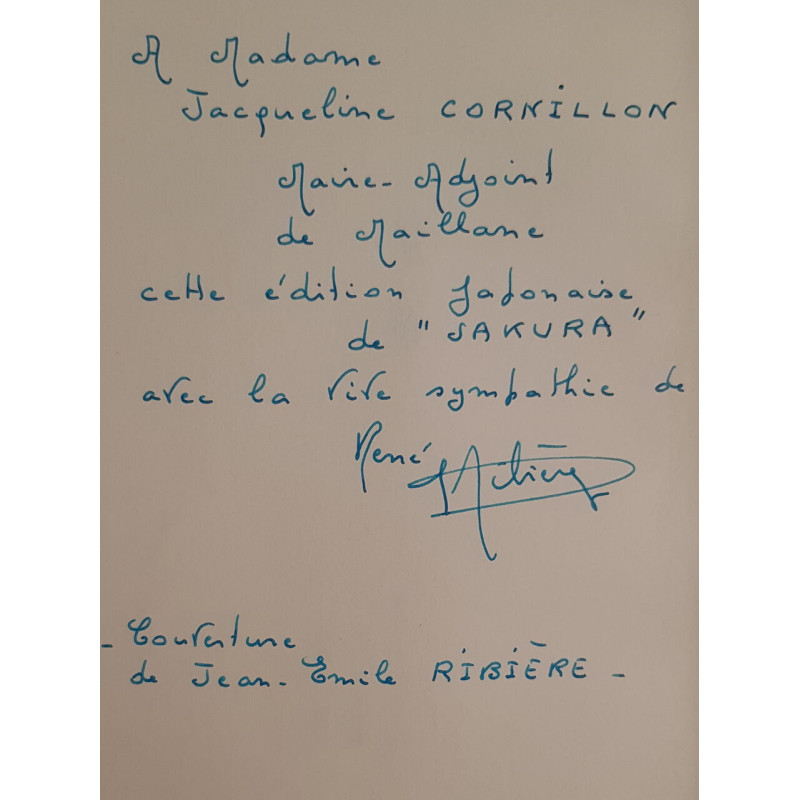 A Madame
Jacqueline CORNILLON
Maire-Adjoint
de Maillane
cette édition japonaise
de "SAKURA"
avec la vive sympathie de
René
- Couverture
de Jean-Emile RIBIÈRE -